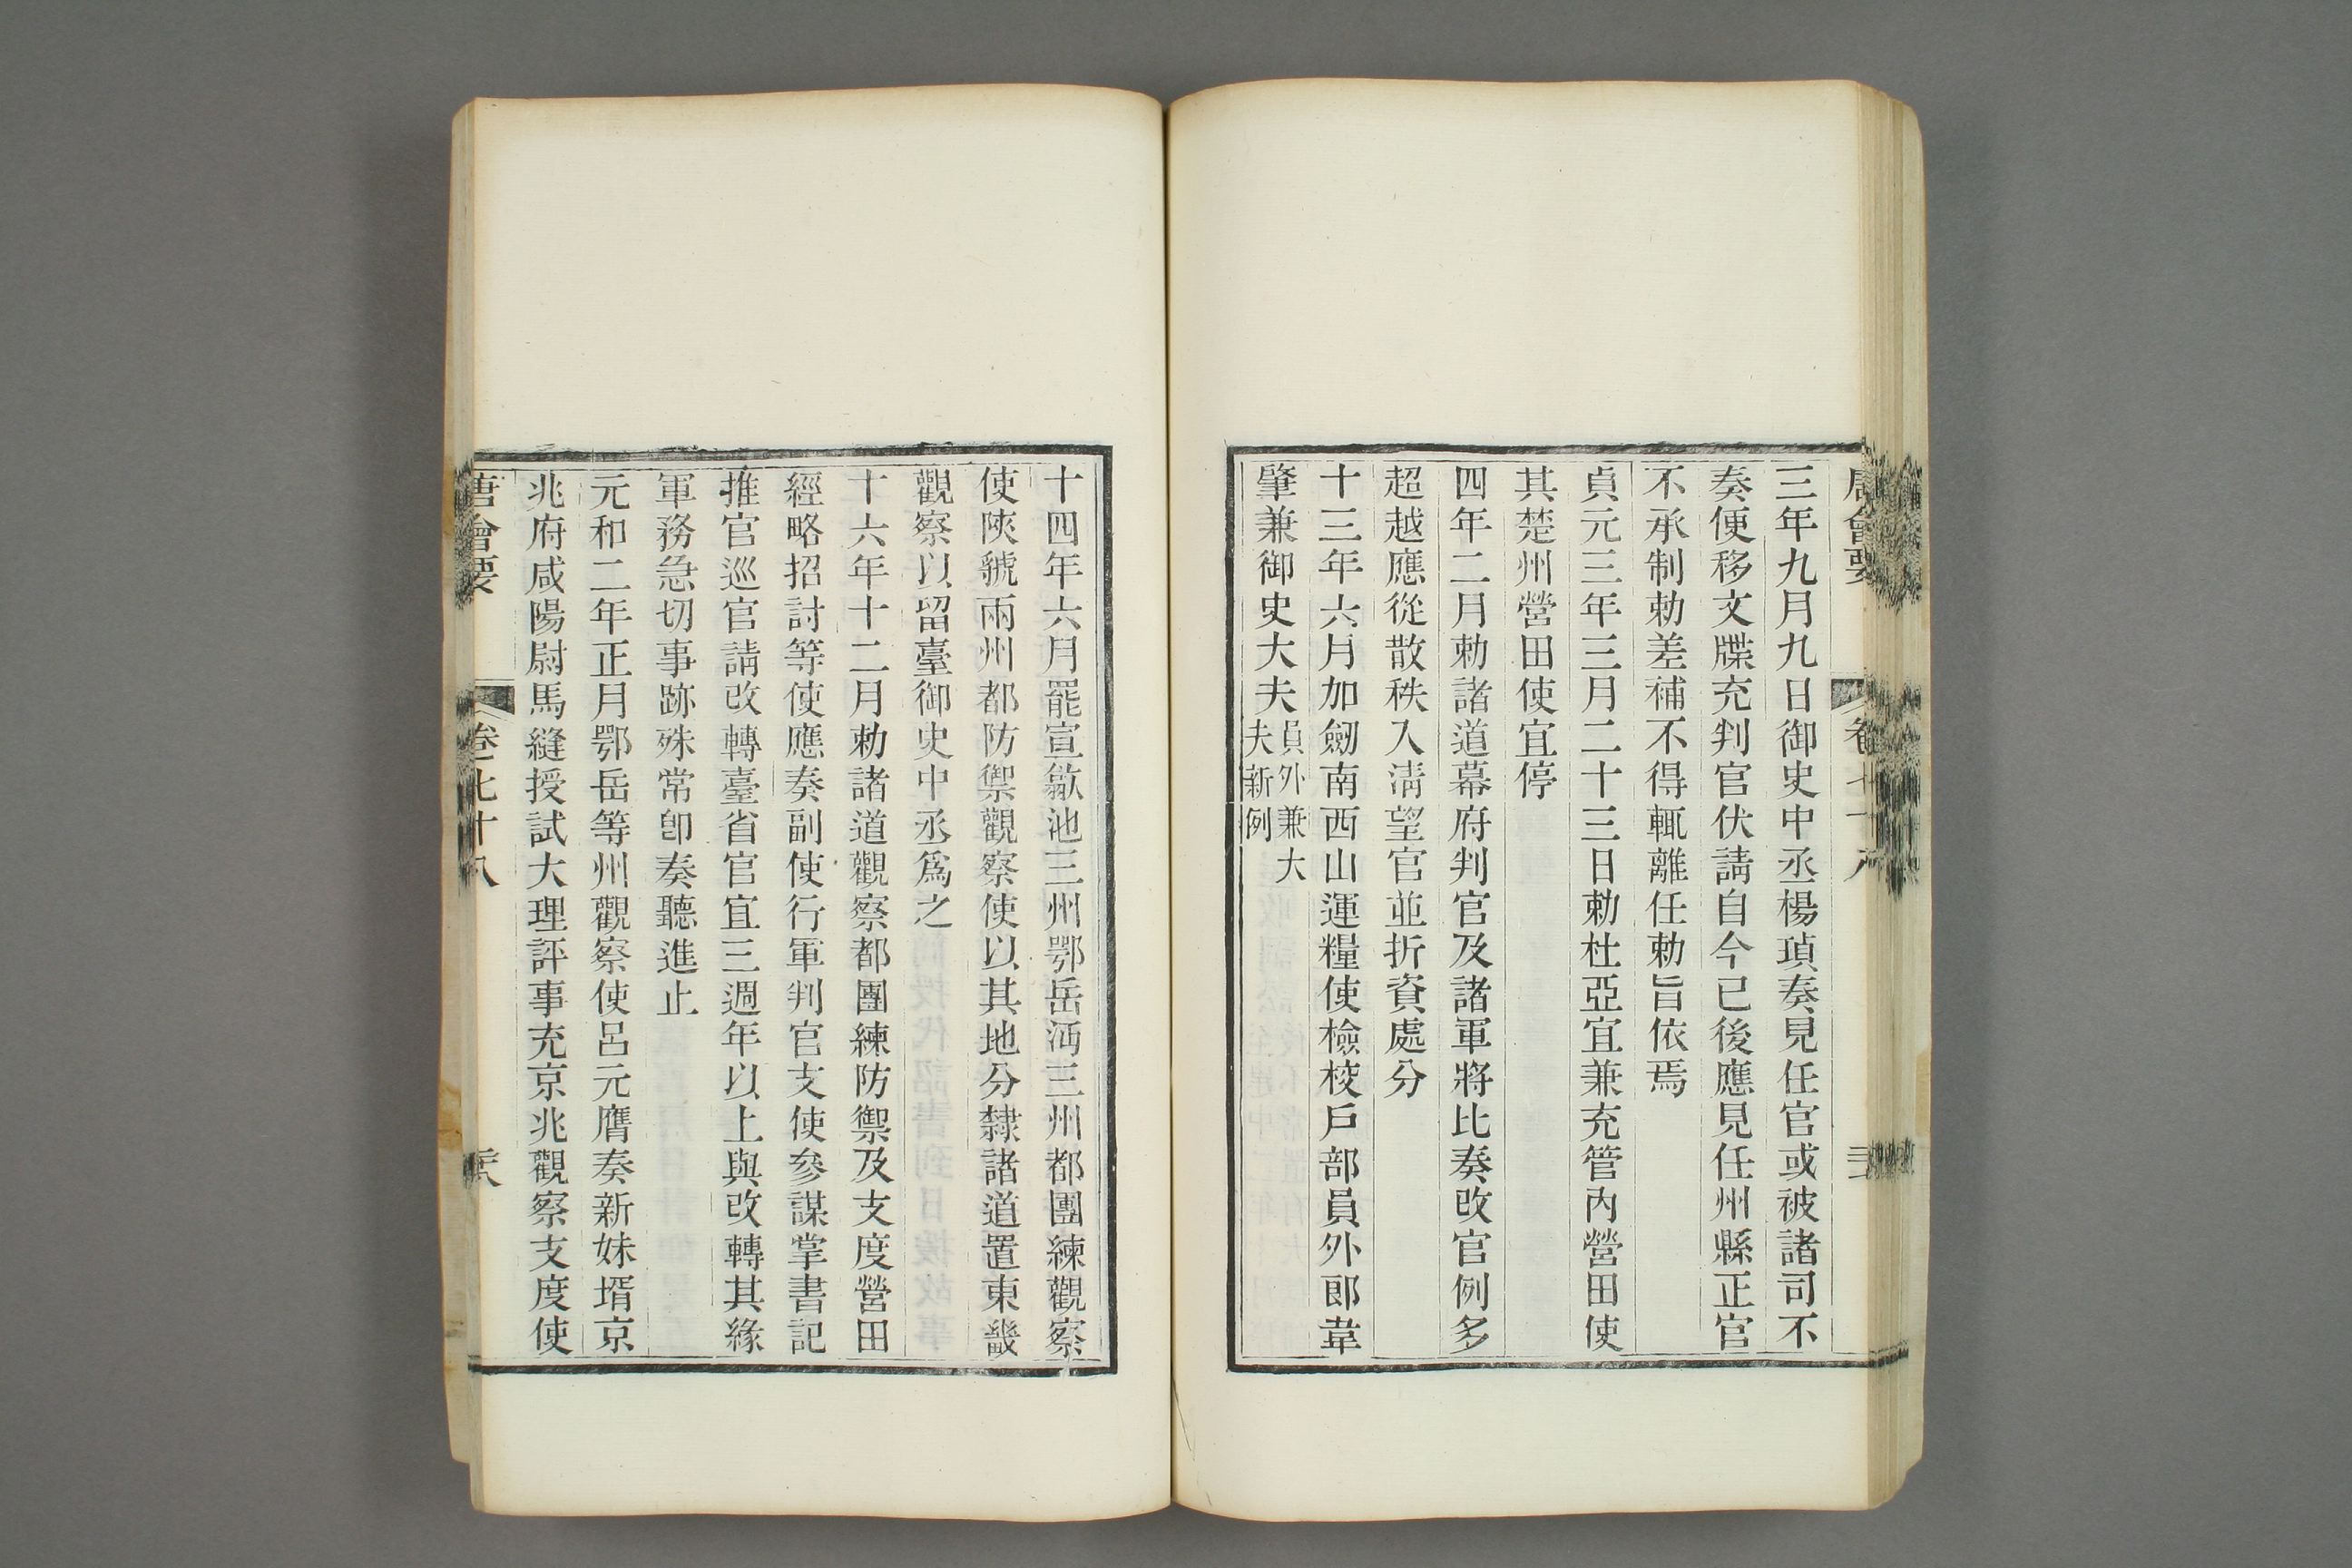 三年九月九日御史中丞楊頊奏見任官或被諸司不
奏便移文牒充判官伏請自今已後應見任州縣正官
不承制勅差補不得輒離任勅旨依焉
貞元三年三月二十三日勅杜亞宜兼充管內營田使
其楚州營田使宜停
四年二月勅諸道幕府判官及諸軍將比奏改官例多
超越應從散秩入淸望官並折資處分
十三年六月加劒南西山運糧使檢校戶部員外郞韋
肇兼御史大夫員外兼大
夫新例
十四年六月罷宣歙池三州鄂岳沔三州都團練觀察
使陝虢兩州都防禦觀察使以其地分隸諸道置東畿
觀察以留臺御史中丞爲之
十六年十二月勅諸道觀察都團練防禦及支度營田
經略招討等使應奏副使行軍判官支使參謀掌書記
推官巡官請改轉臺省官宜三週年以上與改轉其緣
軍務急切事跡殊常卽奏聽進止
元和二年正月鄂岳等州觀察使呂元膺奏新妹壻京
兆府咸陽尉馬縫授試大理評事充京兆觀察支度使
唐會要 卷七十八